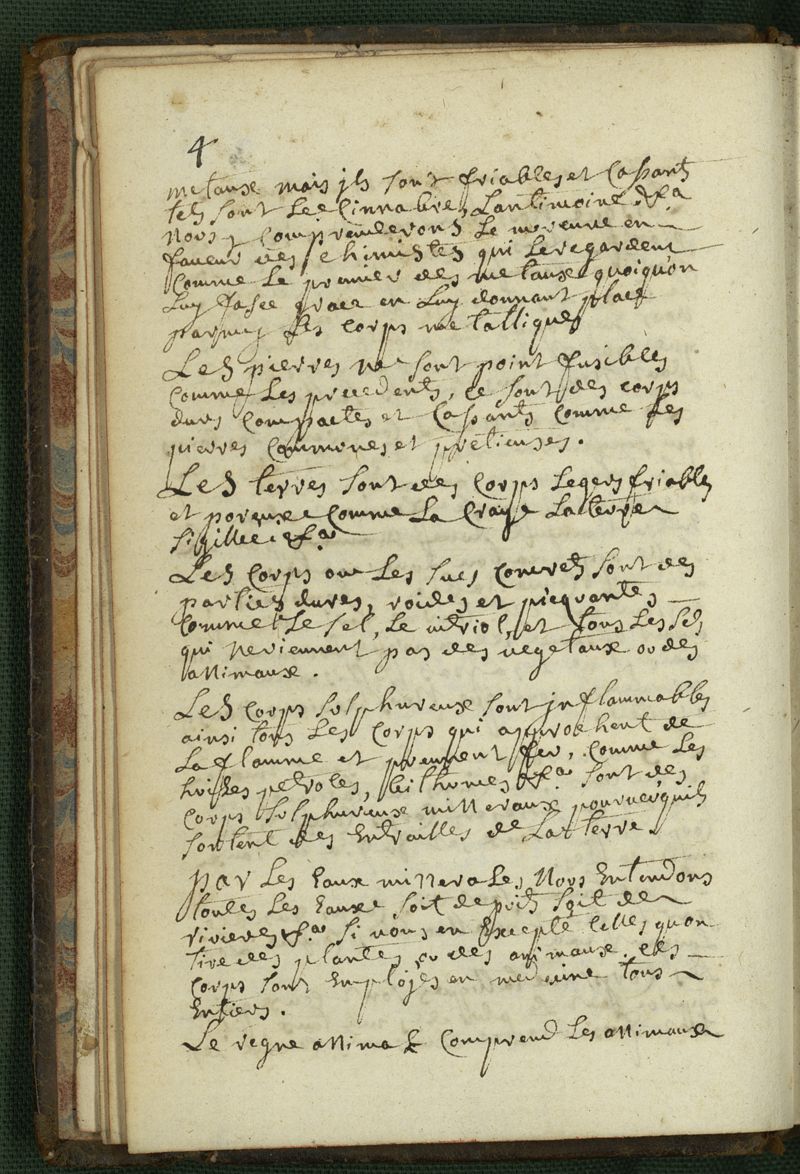 4
metaux mais jls sont friables et Cassants
tels sont Les Cinnabres Lantimoine &ca
Nous y comprenderons Le mercure en
faveur des chimistes qui Le regardent
comme Le premier des metaux quoiquon
Luy fasse grace en Luy donnant place
parmy Les corps metalliques
Les pierres ne sont point fusibles
comme Les precedents, ce sont des corps
durs compactes et Cassants comme Les
pierres communes et pretieuses.
Les terres sont des corps Legers friables
et poreux comme La Craye La terre
sigillée &ca
Les Corps ou Les sucs concrets sont des
parties dures, roides et picquantes
comme Le sel, Le vitriol, et tous Les sels
qui ne viennent pas des vegetaux ou des
animaux.
Les corps sulphureux sont jnflammables
ainsi tous Les corps qui approchent de
La flamme et prennent feu, comme Les
huiles petroles, bithumes &ca sont des
corps sulphureux mineraux pourveuquils
sortent des Entrailles de La terre.
par Les Eaux minerales Nous Entendons
toutes Les Eaux soit de puits soit de
rivieres &ca si vous en Excepté celles quon
tire des plantes ou des animaux. ces
corps sont Employés en medecine tous
Entiers.
Le regne animal comprend Les animaux